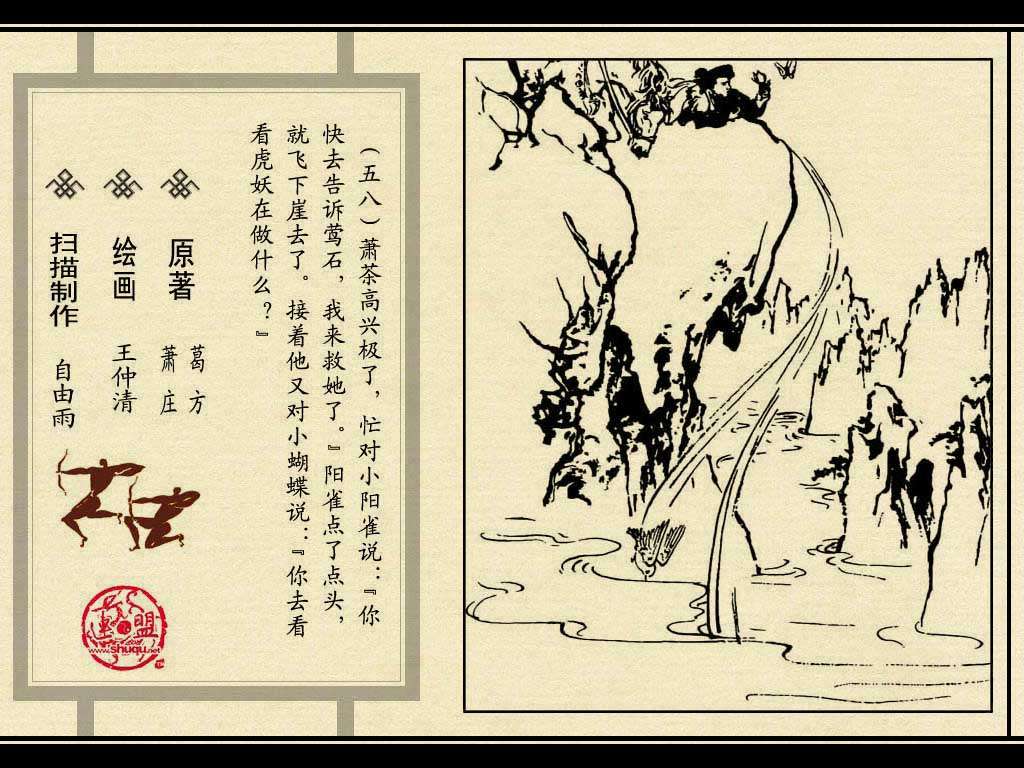 （五八）萧茶高兴极了，忙对小阳雀说：『你
快去告诉莺石，我来救她了。』阳雀点了点头，
就飞下崖去了。接着他又对小蝴蝶说：『你去看
看虎妖在做什么？』
原著 葛方
萧庄
绘画 王仲清
扫描制作 自由雨
连盟
www.shuqu.net